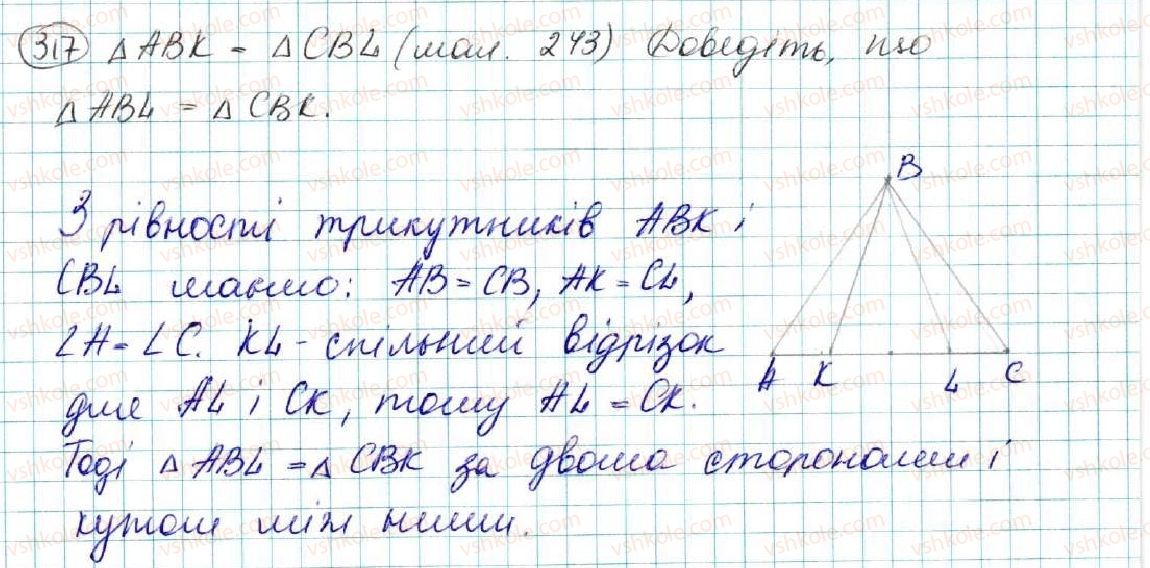 317 △ABK = △CBL (мал. 243) Доведіть, що
△ABL = △CBK.
З рівності трикутників ABK і
CBL маємо: AB = CB, AK = CL,
∠A = ∠C. KL - спільний відрізок
для AL і CK, тому AL = CK.
Тоді △ABL = △CBK за двома сторонами і
кутом між ними.
B
A K L C